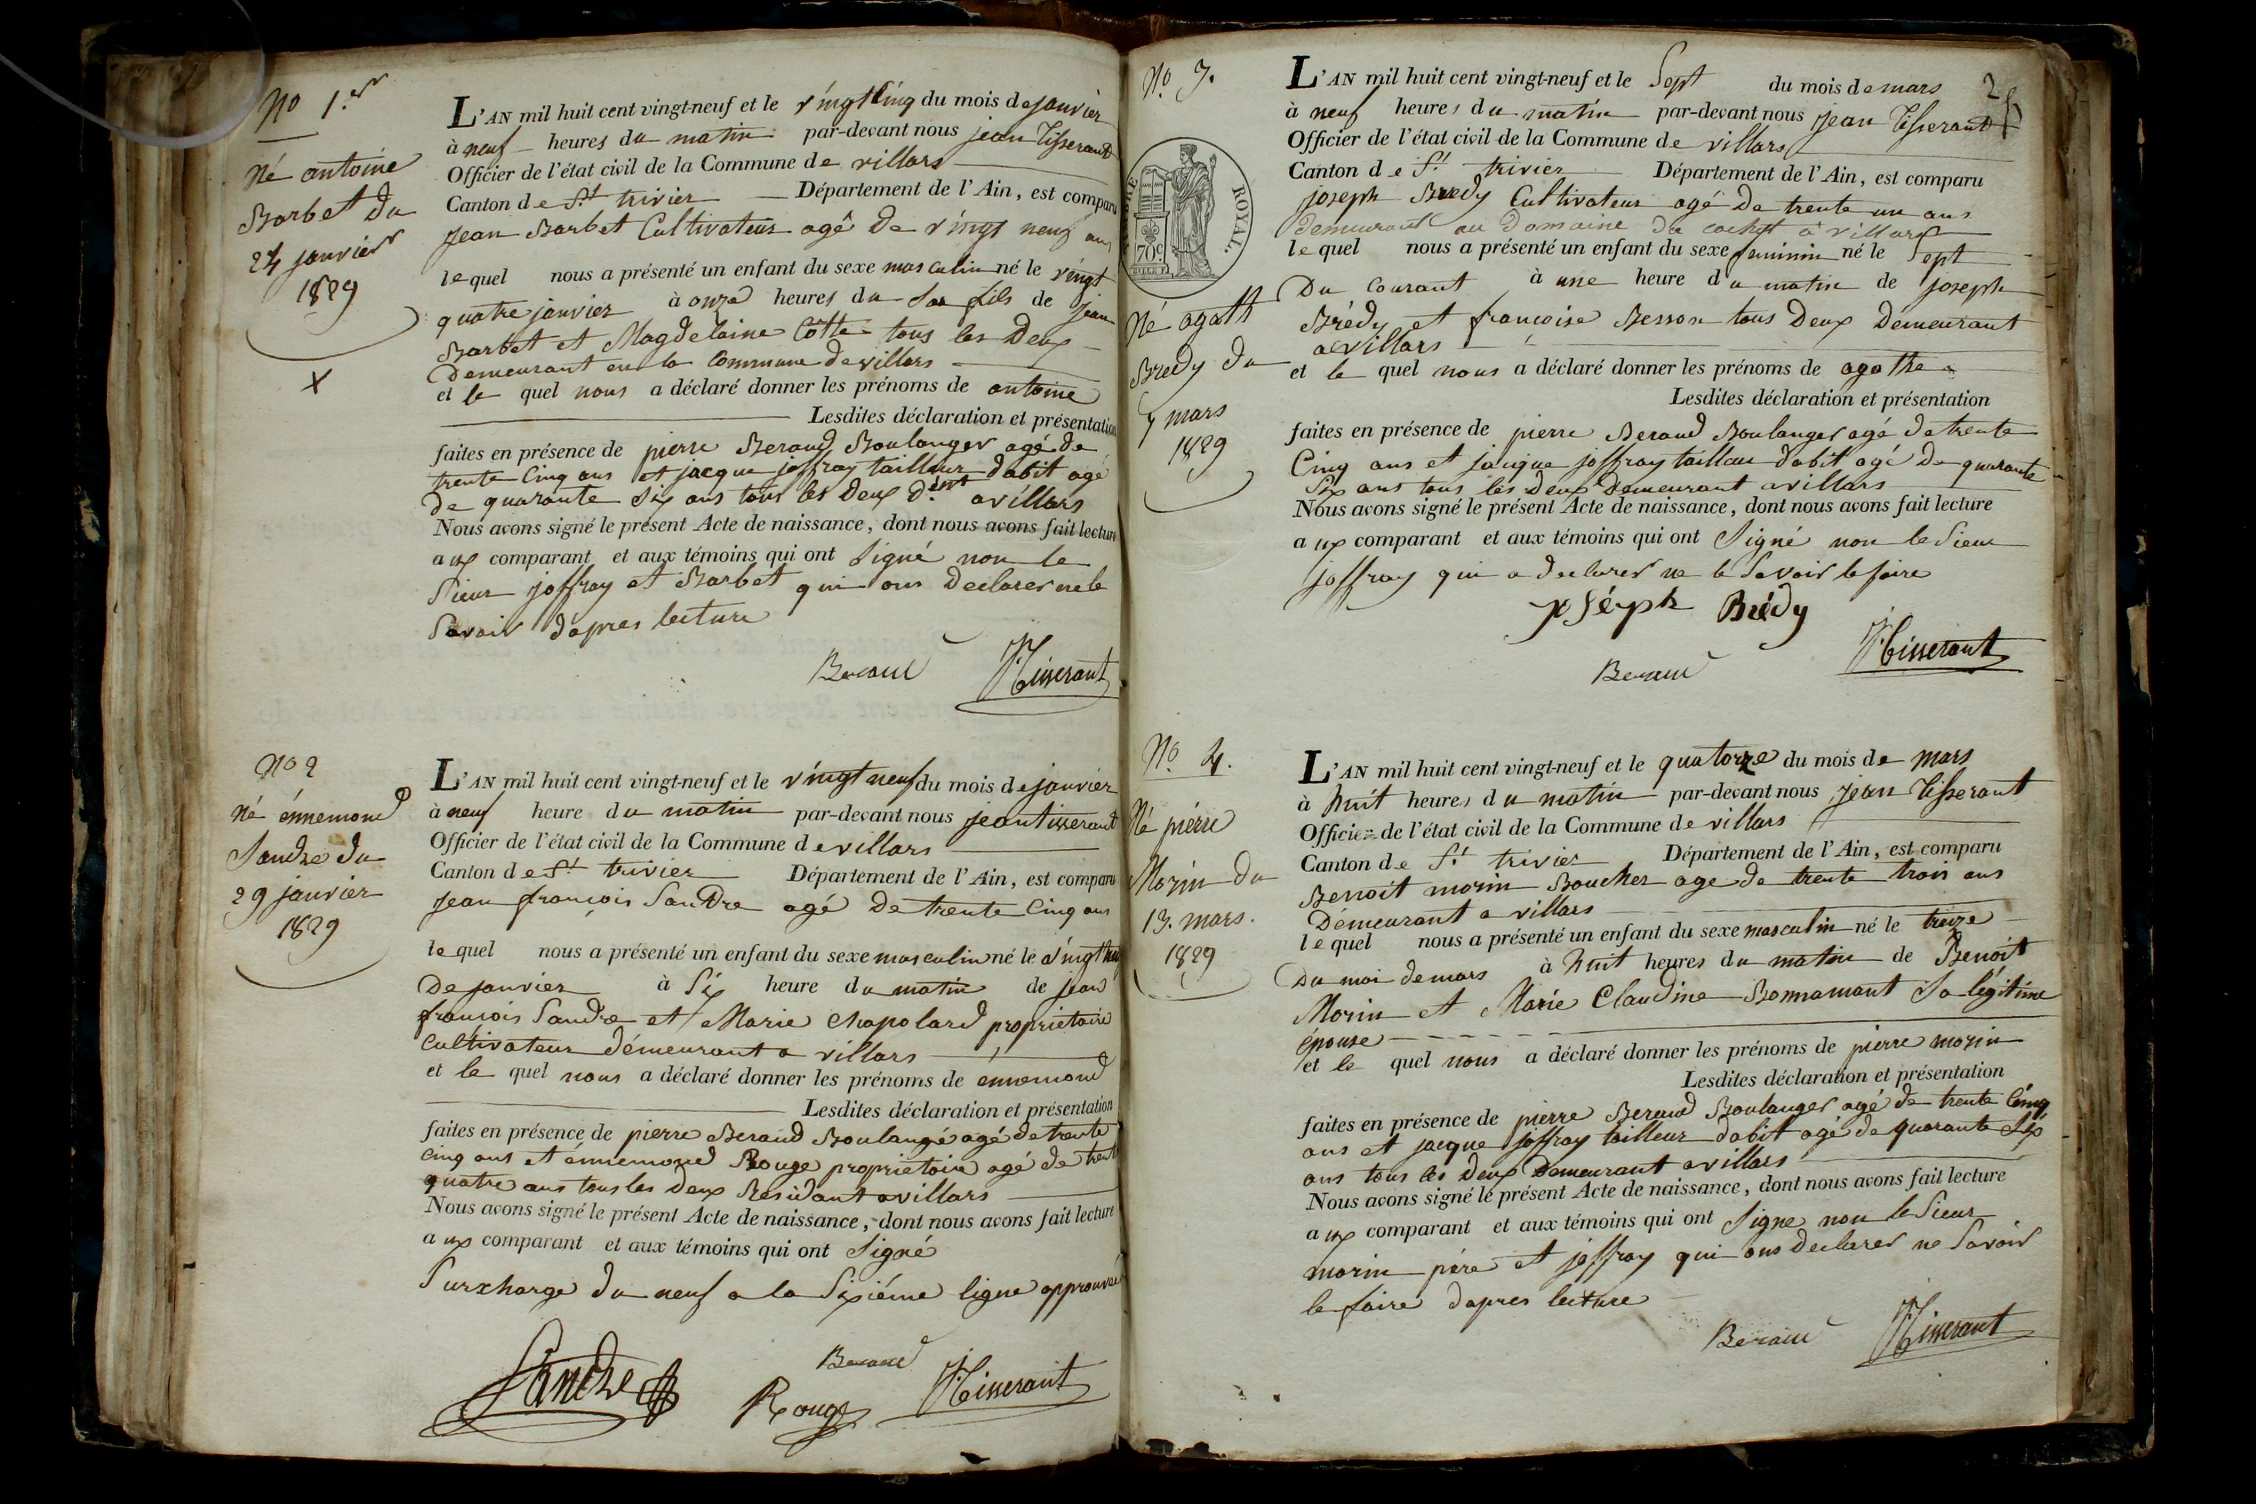 No 1.er
Né antoine
Barbet du
24 janvier
1829
L'AN mil huit cent vingt-neuf et le vingt Cinq du mois de janvier
à neuf heures du matin par-devant nous jean Tisserant
Officier de l'état civil de la Commune de villars
Canton de St trivier Département de l'Ain, est comparu
jean Barbet Cultivateur agé de vingt neuf ans
lequel nous a présenté un enfant du sexe masculin né le vingt
quatre janvier à onze heures du Soir fils de jean
Barbet et Magdelaine Cotte tous les Deux
Demeurant en la Commune de villars
et le quel nous a déclaré donner les prénoms de antoine
Lesdites déclaration et présentation
faites en présence de pierre Beraud Boulanger agé de
trente Cinq ans et jacque joffray tailleur dabit agé
de quarante Six ans tous les Deux a villars
Nous avons signé le présent Acte de naissance, dont nous avons fait lecture
aux comparant et aux témoins qui ont Signé non le
Sieur joffray et Barbet qui ons Declarer ne le
Savoir dapres lecture
Beraud Tisserant
No 2
Né énnemond
Sandre du
29 janvier
1829
L'AN mil huit cent vingt-neuf et le vingt neuf du mois de janvier
à neuf heure du matin par-devant nous jean tisserant
Officier de l'état civil de la Commune de villars
Canton de St trivier Département de l'Ain, est comparu
jean françois Sandre agé De trente Cinq ans
lequel nous a présenté un enfant du sexe masculin né le vingt neuf
De janvier à Six heure du matin de jean
françois Sandre et Marie Chapolard propriétaire
Cultivateur démeurant a villars
et le quel nous a déclaré donner les prénoms de ennemond
Lesdites déclaration et présentation
faites en présence de pierre Beraud Boulangé agé de trente
Cinq ans et énnemond Rouge propriétaire agé de trente
quatre ans tous les Deux Résidant a villars
Nous avons signé le présent Acte de naissance, dont nous avons fait lecture
aux comparant et aux témoins qui ont Signé
Surcharge du neuf a la Sixiéme ligne approuvée
Sandre Beraud
Rouge Tisserant
No 3.
2
TIMBRE ROYAL.
70c.
Né agath
Bredy du
7 mars
1829
L'AN mil huit cent vingt-neuf et le Sept du mois de mars
à neuf heures du matin par-devant nous jean Tisserant
Officier de l'état civil de la Commune de villars
Canton de St trivier Département de l'Ain, est comparu
joseph Bredy Cultivateur agé De trente un ans
demeurant au Domaine du a villars
lequel nous a présenté un enfant du sexe feminin né le Sept
Du Courant à une heure du matin de joseph
Brédy et françoise Besson tous Deux Démeurant
a villars
et le quel nous a déclaré donner les prénoms de agathe
Lesdites déclaration et présentation
faites en présence de pierre Beraud Boulanger agé de trente
Cinq ans et joffray tailleur dabit agé De quarante
Six ans tous les Deux Demeurant a villars
Nous avons signé le présent Acte de naissance, dont nous avons fait lecture
aux comparant et aux témoins qui ont Signé non le Sieur
joffray qui a declarer ne le Savoir le faire
joséph Brédy
Beraud Tisserant
No. 4.
Né pierre
Morin du
13. mars.
1829
L'AN mil huit cent vingt-neuf et le quatorze du mois de mars
à huit heures du matin par-devant nous jean Tisserant
Officier de l'état civil de la Commune de villars
Canton de St trivier Département de l'Ain, est comparu
Benoit morin Boucher age de trente trois ans
Démeurant a villars
lequel nous a présenté un enfant du sexe masculin né le treize
Du moi de mars à huit heures du matin de Benoit
Morin et Marie Claudine Bonnamant Sa légitime
épouse
et le quel nous a déclaré donner les prénoms de pierre morin
Lesdites déclaration et présentation
faites en présence de pierre Beraud Boulanger agé de trente Cinq
ans et jacque joffray tailleur dabit agé de quarante Six
ans tous les Deux Demeurant a villars
Nous avons signé le présent Acte de naissance, dont nous avons fait lecture
aux comparant et aux témoins qui ont Signe non le Sieur
morin pére et joffray qui ons declarer ne Savoir
le faire dapres lecture
Beraud Tisserant